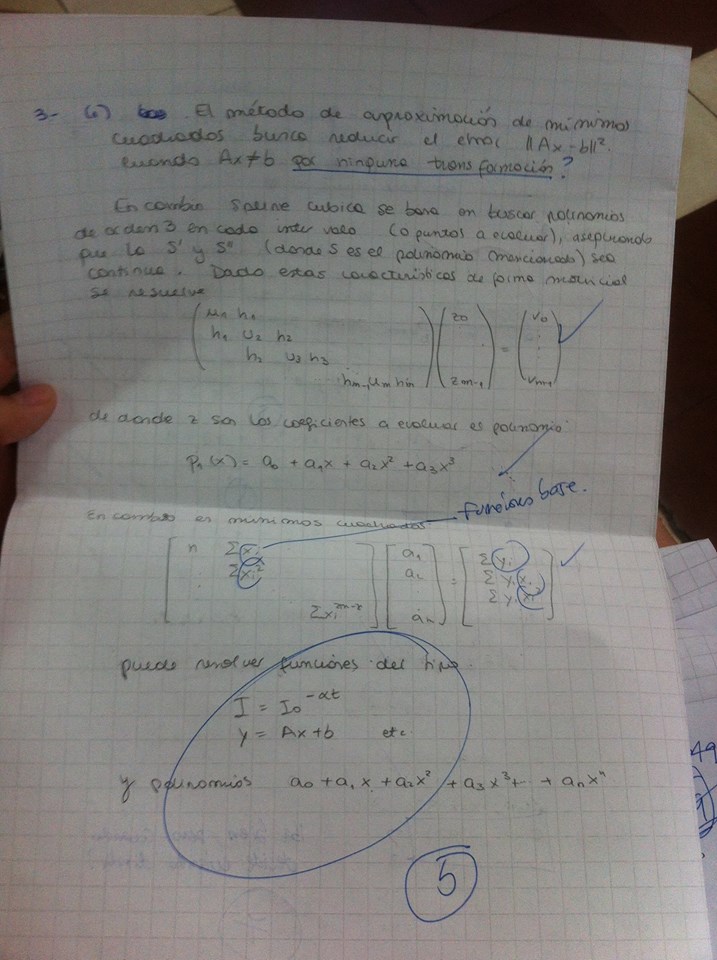 3- (c) El método de aproximación de mínimos
cuadrados busca reducir el error ||Ax - b||².
cuando Ax ≠ b por ninguna transformación?
En cambio Spline cubica se basa en buscar polinomios
de orden 3 en cada intervalo (o puntos a evaluar), asegurando
que la S' y S'' (donde S es el polinomio mencionado) sea
continua. Dado estas características de forma matricial
se resuelve
u1 h1 z0 v0
h1 u2 h2
h2 u3 h3 =
hm-1 um hm zm-1 vm-1
de donde z son los coeficientes a evaluar es polinomio
pn(x) = a0 + a1x + a2x² + a3x³
funciones base.
En cambio en minimos cuadrados
n Σxi a1 Σyi
Σxi² a2 = Σyixi
Σyixi
an
puede resolver funciones del tipo.
I = I0^-αt
y = Ax + b etc
y polinomios a0 + a1x + a2x² + a3x³ + + anxⁿ
5